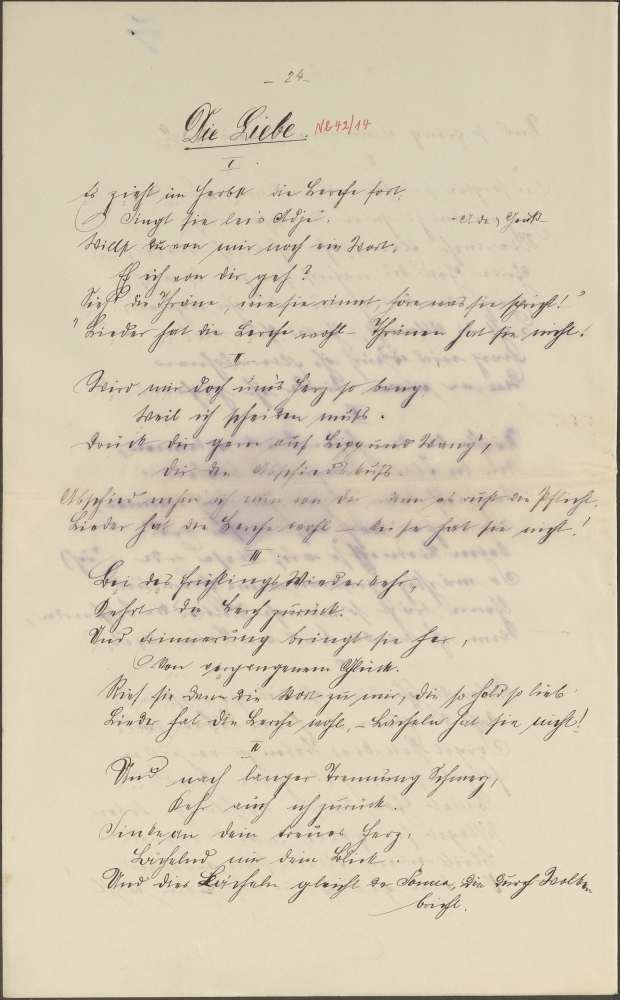 - 24 -
Die Liebe. NL42/14
I.
Es zieht im Herbst die Lerche fort,
Singt sie leis Adje.
Willst du von mir noch ein Wort,
Eh ich von dir geh?
Sieh die Thräne, wie sie rinnt, höre was sie spricht!"
"Lieder hat die Lerche wohl - Thränen hat sie nicht!
II
Wird mir doch um's Herz so bang
Weil ich scheiden muß.
Drück dir gern auf Lipp und Wang',
dir den Abschiedskuß.
Abschied nehm ich nun von dir, denn es ruft die Pflicht.
Lieder hat die Lerche wohl - Küsse hat sie nicht!
III.
Bei des Frühlings Wiederkehr,
Kehrt die Lerch zurück.
Und Erinnerung bringt sie her,
Von vergangenem Glück.
Rief sie dann die Wort zu mir, die so hold so lieb
Lieder hat die Lerche wohl, - Lächeln hat sie nicht!
IV
Und nach langer Trennung Schmerz,
Kehr auch ich zurück.
Sinke an dein treues Herz,
Lächelnd mir dein Blick.
Und dies Lächeln gleicht der Sonne, die durch Wolken
bricht.